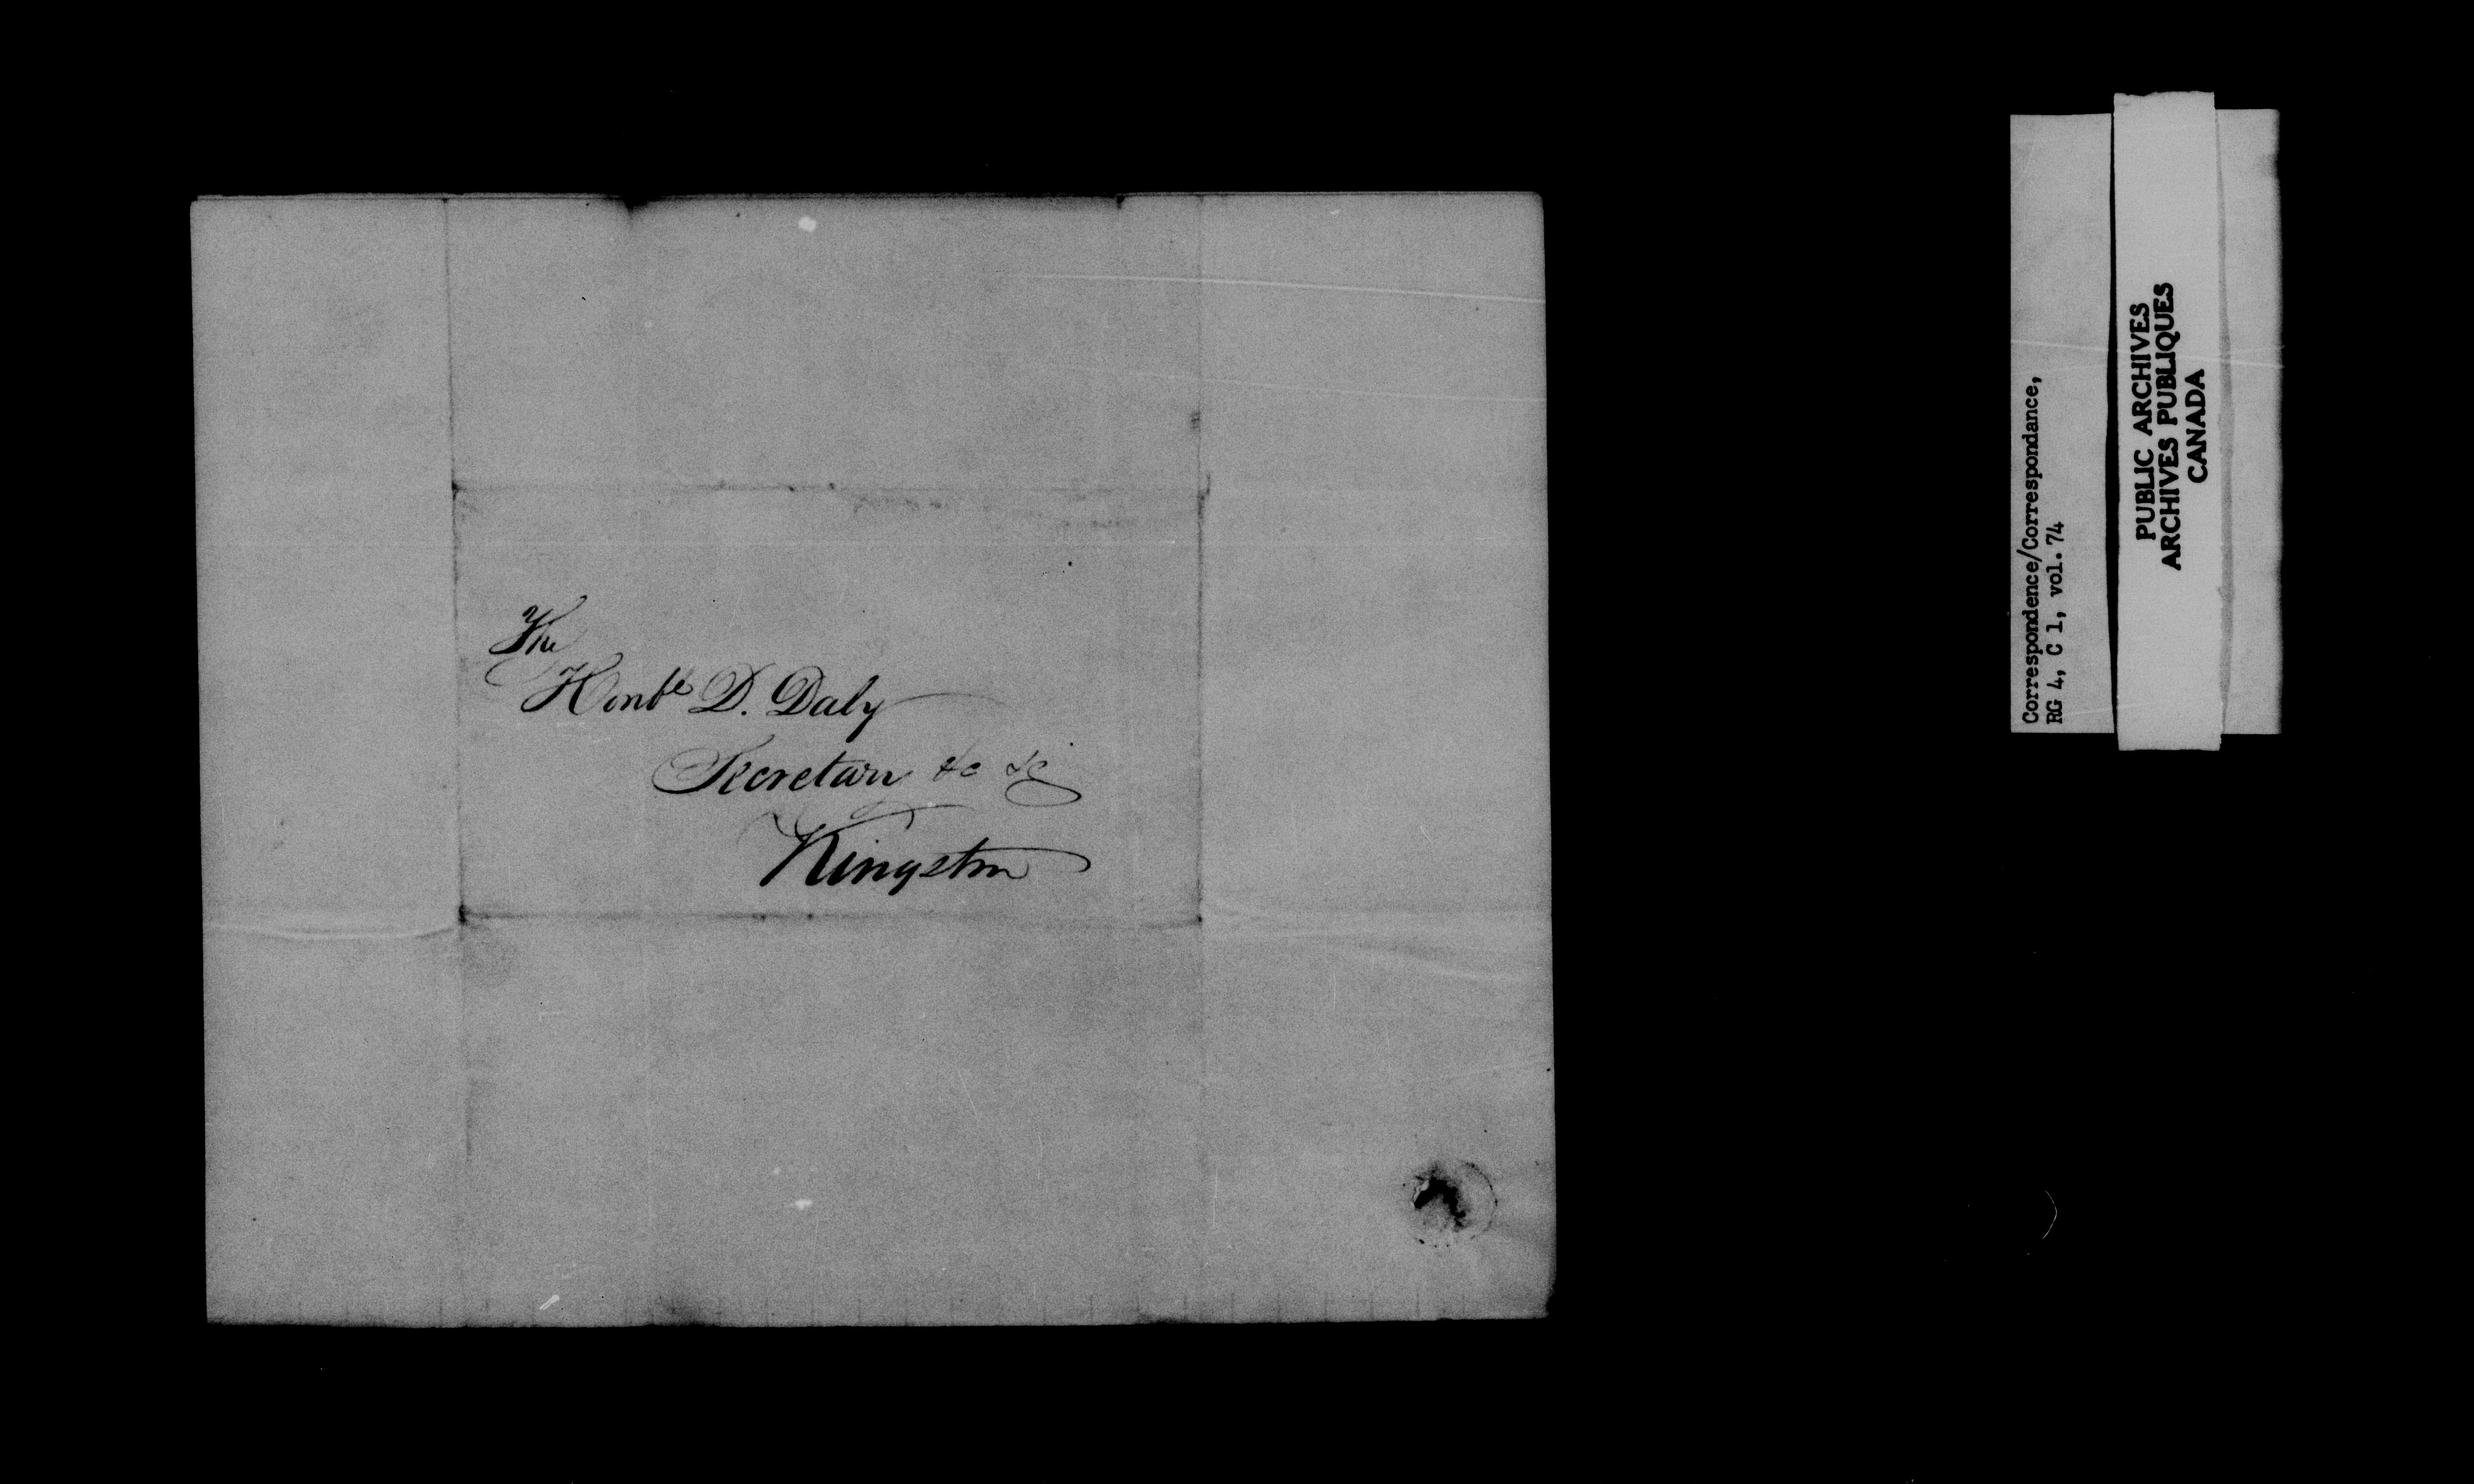 The
Honble D. Daly
Secretary &c &c
Kingston
Correspondence/Correspondance,
RG 4, C 1, vol. 74
PUBLIC ARCHIVES
ARCHIVES PUBLIQUES
CANADA